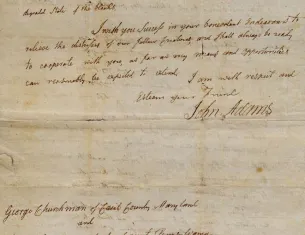 degraded State of the Blacks.
I wish you Success in your benevolent Endeavours to
relieve the distresses of our fellow Creatures, and shall always be ready
to cooperate with you, as far as my means and opportunities
can reasonably be expected to extend.
I am with respect and
Esteem your Friend
John Adams
George Churchman of Cecil County Maryland
and